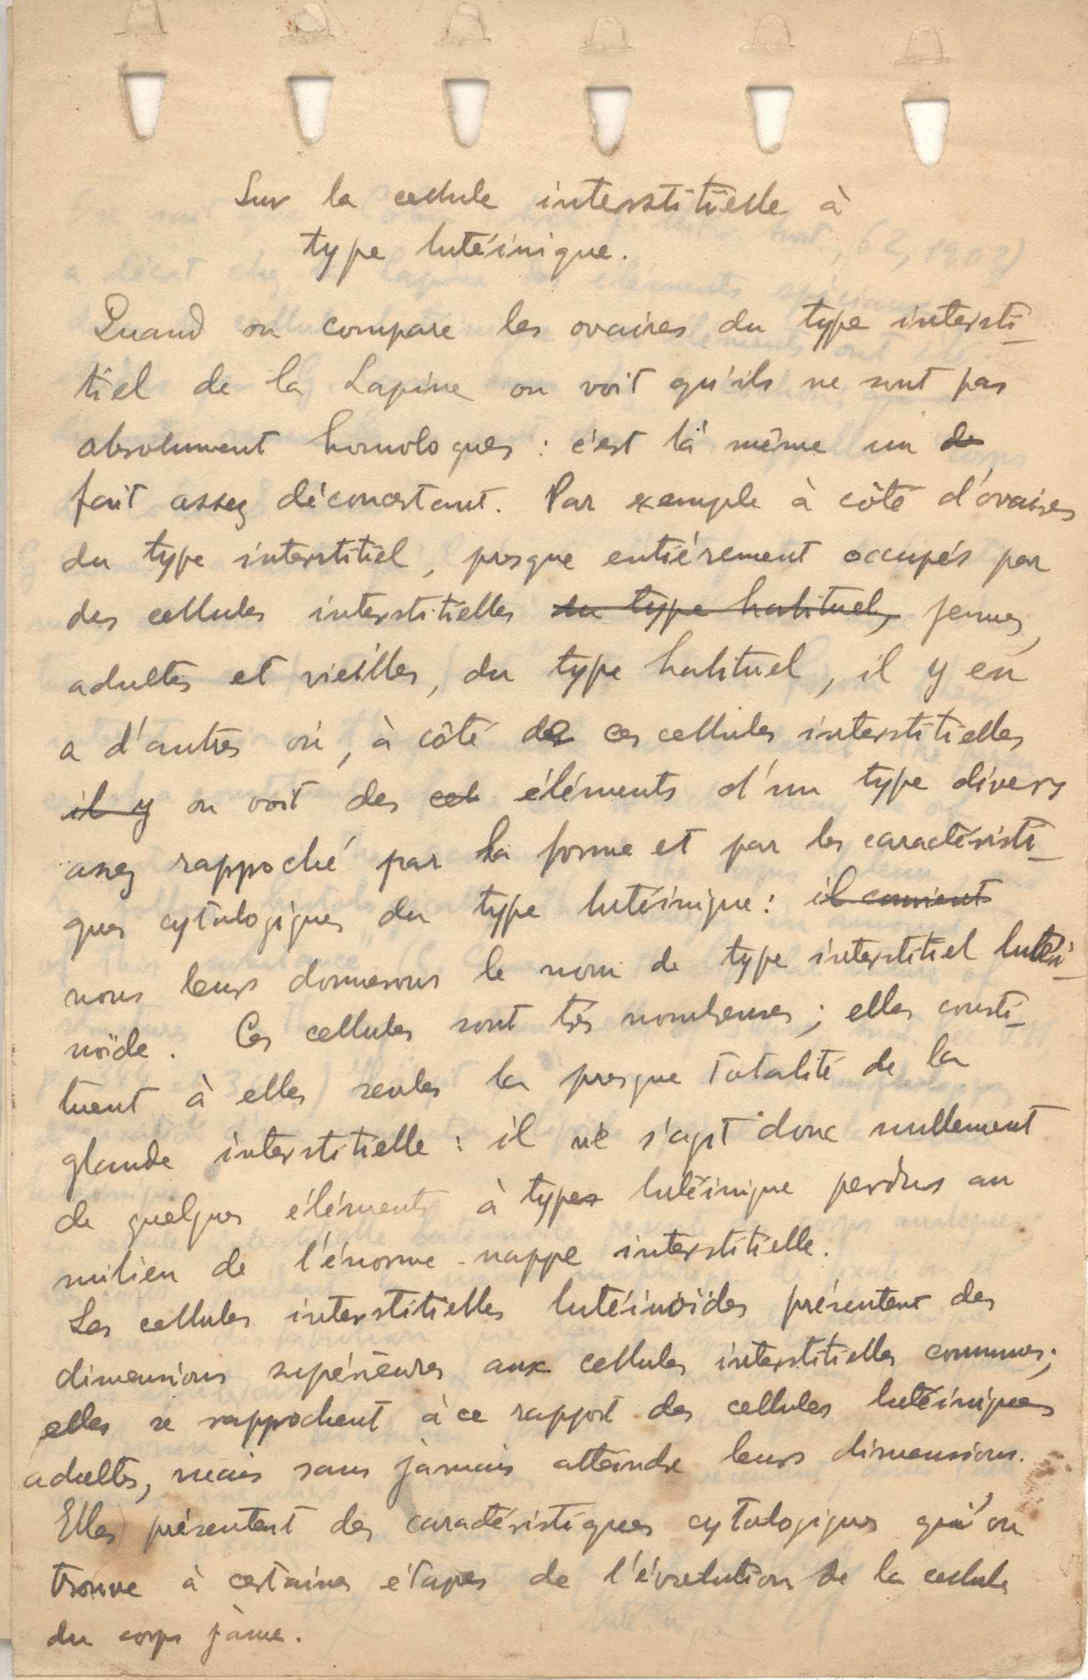 Sur la cellule interstitielle à
type lutéinique.
Quand on compare les ovaires du type intersti-
tiel de la Lapine on voit qu'ils ne sont pas
absolument homologues : c'est là même un de
fait assez déconcertant. Par exemple à côté d'ovaires
du type interstitiel, presque entièrement occupés par
des cellules interstitielles du type habituel, jeunes,
adultes et vieilles, du type habituel, il y en
a d'autres où, à côté de ces cellules interstitielles
il y on voit des cel éléments d'un type divers
assez rapproché par la forme et par les caractéristi-
ques cytologiques du type lutéinique : il convient
nous leurs donnerons le nom de type interstitiel lutéi-
noïde. Ces cellules sont très nombreuses ; elles consti-
tuent à elles seules la presque totalité de la
glande interstitielle : il ne s'agit donc nullement
de quelques éléments à type lutéinique perdus au
milieu de l'énorme nappe interstitielle.
Les cellules interstitielles lutéinoïdes présentent des
dimensions supérieures aux cellules interstitielles communes ;
elles se rapprochent à ce rapport des cellules lutéiniques
adultes, mais sans jamais atteindre leurs dimensions.
Elles présentent des caractéristiques cytologiques qu'on
trouve à certaines étapes de l'évolution de la cellule
du corps jaune.